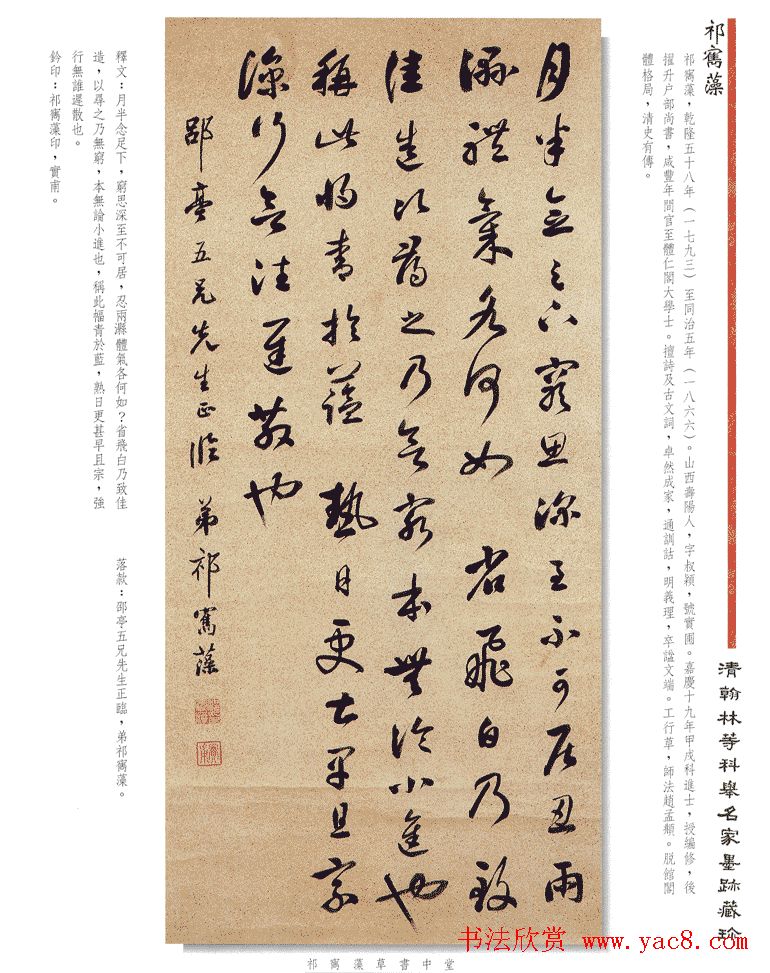 祁寯藻
祁寯藻，乾隆五十八年（一七九三）至同治五年（一八六六）。山西壽陽人，字叔穎，號實圃。嘉慶十九年甲戌科進士，授編修，後
擢升户部尚書，咸豐年間官至體仁閣大學士。擅詩及古文詞，卓然成家，通訓詁，明義理，卒謚文端。工行草，師法趙孟頫。脱館閣
體格局，清史有傳。
清翰林等科舉名家墨跡藏珍
月半念足下窮思深至不可居忍兩
㶚體氣各何如省飛白乃致
佳造以尋之乃無窮本無論小進也
稱此㡡青於藍熱日更甚早且宗
深行無誰遲散也
邵亭五兄先生正臨 弟祁寯藻
釋文：月半念足下，窮思深至不可居，忍兩㶚體氣各何如？省飛白乃致佳
造，以尋之乃無窮，本無論小進也，稱此幅青於藍，熟日更甚早且宗，強
行無誰遲散也。
鈐印：祁寯藻印，實甫。
落款：邵亭五兄先生正臨，弟祁寯藻。
祁寯藻草書中堂
书法欣赏 www.yac8.com